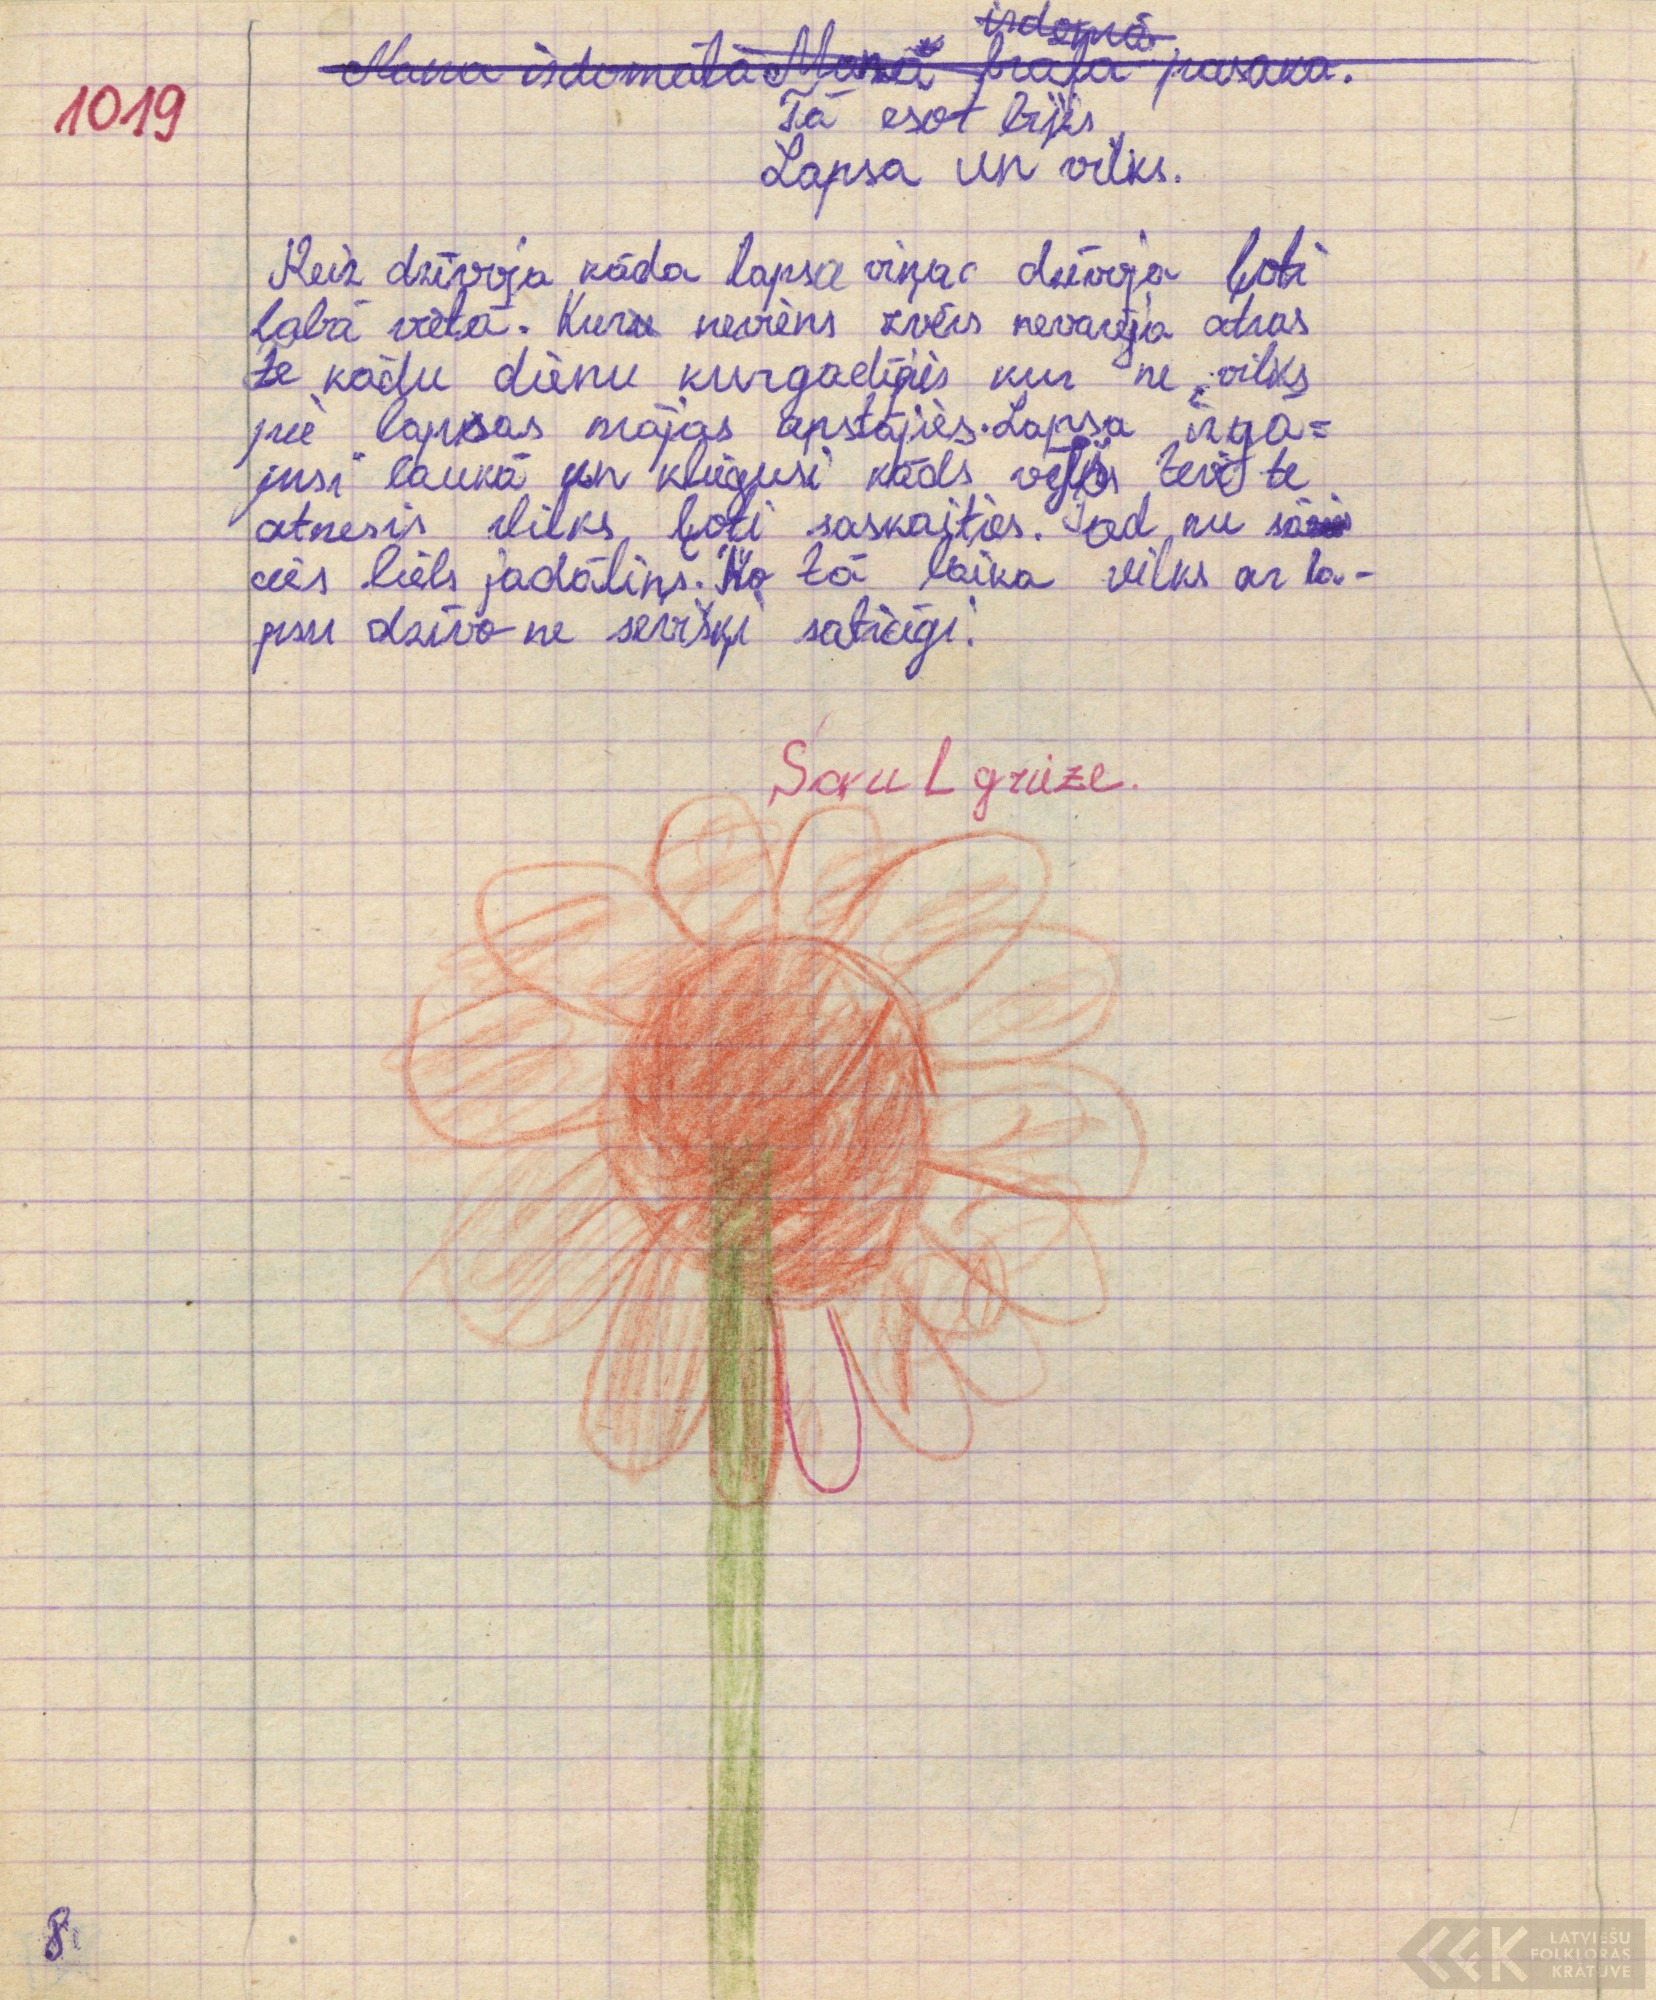 izdomā
Mana izdomāta Mana brāļa pasaka.
1019
Tā esot bijis
Lapsa un vilks.
Reiz dzīvoja kāda lapsa viņa dzīvoja ļoti
labā vietā. Kuru neviens zvērs nevarēja atras
te kādu dienu kurgadījies kur ne vilks
pie lapsas mājas apstājies. Lapsa izgā=
jusi laukā un kliegusi kāds vējš tevi te
atnesis vilks ļoti saskaities. Tad nu sā
cies liels jadāliņš. No tā laika vilks ar la-
psu dzīvo ne sevišķi saticīgi.
Savu L grūze.
8
LATVIEŠU
FOLKLORAS
KRĀTUVE